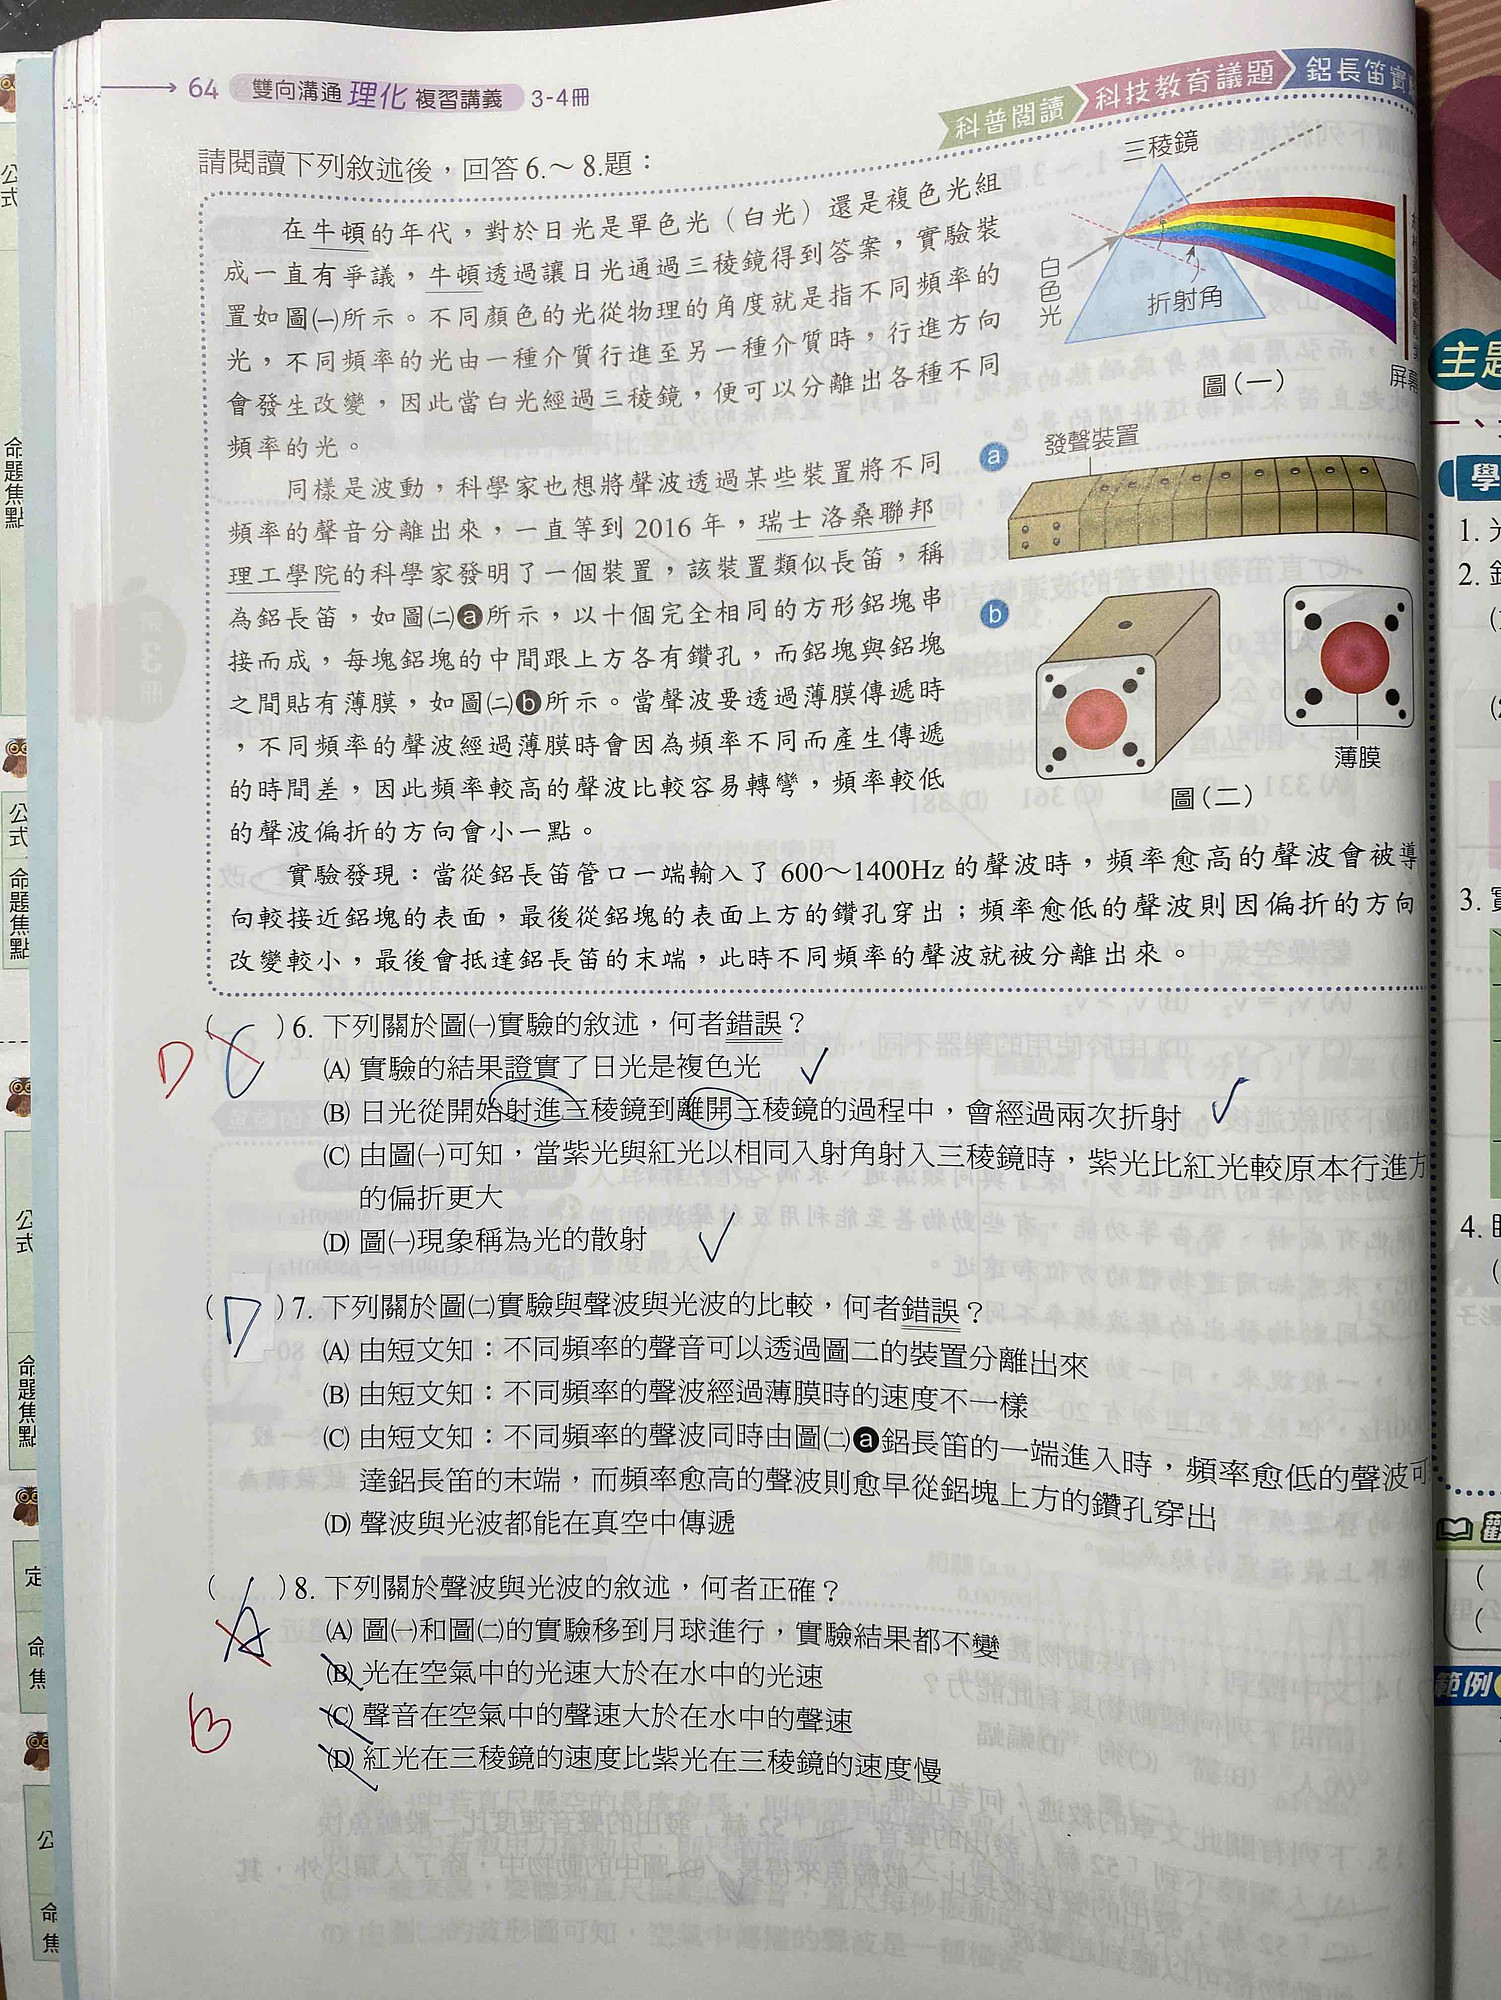 64 雙向溝通 理化 複習講義 3-4冊
科普閱讀 科技教育議題 鋁長笛實
請閱讀下列敘述後，回答6.～8.題：
在牛頓的年代，對於日光是單色光（白光）還是複色光組
成一直有爭議，牛頓透過讓日光通過三稜鏡得到答案，實驗裝
置如圖㈠所示。不同顏色的光從物理的角度就是指不同頻率的
光，不同頻率的光由一種介質行進至另一種介質時，行進方向
會發生改變，因此當白光經過三稜鏡，便可以分離出各種不同
頻率的光。
三稜鏡
白色光
折射角
屏幕
圖(一)
同樣是波動，科學家也想將聲波透過某些裝置將不同
頻率的聲音分離出來，一直等到2016年，瑞士洛桑聯邦
理工學院的科學家發明了一個裝置，該裝置類似長笛，稱
為鋁長笛，如圖㈡ⓐ所示，以十個完全相同的方形鋁塊串
接而成，每塊鋁塊的中間跟上方各有鑽孔，而鋁塊與鋁塊
之間貼有薄膜，如圖㈡ⓑ所示。當聲波要透過薄膜傳遞時
，不同頻率的聲波經過薄膜時會因為頻率不同而產生傳遞
的時間差，因此頻率較高的聲波比較容易轉彎，頻率較低
的聲波偏折的方向會小一點。
a 發聲裝置
b
薄膜
圖(二)
實驗發現：當從鋁長笛管口一端輸入了600～1400Hz的聲波時，頻率愈高的聲波會被導
向較接近鋁塊的表面，最後從鋁塊的表面上方的鑽孔穿出；頻率愈低的聲波則因偏折的方向
改變較小，最後會抵達鋁長笛的末端，此時不同頻率的聲波就被分離出來。
D ( C )6. 下列關於圖㈠實驗的敘述，何者錯誤？
(A) 實驗的結果證實了日光是複色光
(B) 日光從開始射進三稜鏡到離開三稜鏡的過程中，會經過兩次折射
(C) 由圖㈠可知，當紫光與紅光以相同入射角射入三稜鏡時，紫光比紅光較原本行進方
的偏折更大
(D) 圖㈠現象稱為光的散射
( D )7. 下列關於圖㈡實驗與聲波與光波的比較，何者錯誤？
(A) 由短文知：不同頻率的聲音可以透過圖二的裝置分離出來
(B) 由短文知：不同頻率的聲波經過薄膜時的速度不一樣
(C) 由短文知：不同頻率的聲波同時由圖㈡ⓐ鋁長笛的一端進入時，頻率愈低的聲波可
達鋁長笛的末端，而頻率愈高的聲波則愈早從鋁塊上方的鑽孔穿出
(D) 聲波與光波都能在真空中傳遞
( A )8. 下列關於聲波與光波的敘述，何者正確？
(A) 圖㈠和圖㈡的實驗移到月球進行，實驗結果都不變
(B) 光在空氣中的光速大於在水中的光速
B
(C) 聲音在空氣中的聲速大於在水中的聲速
(D) 紅光在三稜鏡的速度比紫光在三稜鏡的速度慢
公式
命題焦點
公式
命題焦點
公式
命題焦點
命焦
公
命焦
主題
學
1.
2.
3.
4.
範例